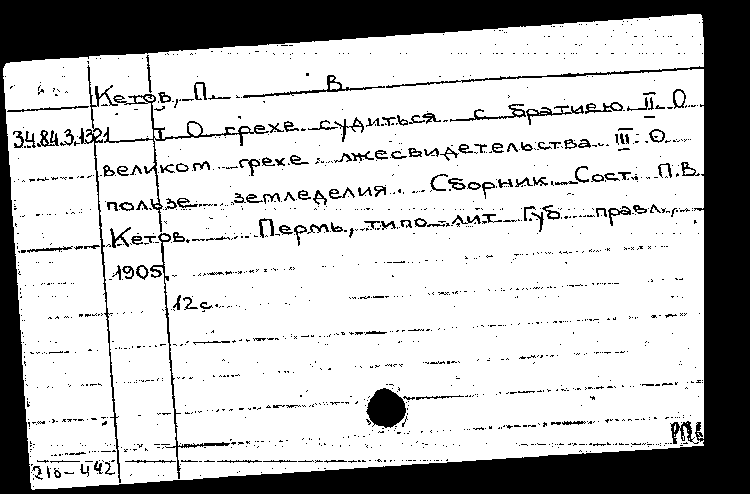 Кетов, П. В.
34.84.3.1321 I О грехе судиться с братиею. II О
великом грехе лжесвидетельства. III О
пользе земледелия. Сборник. Сост. П.В.
Кетов. Пермь, типо-лит Губ. правл.,
1905.
12 с.
218-442